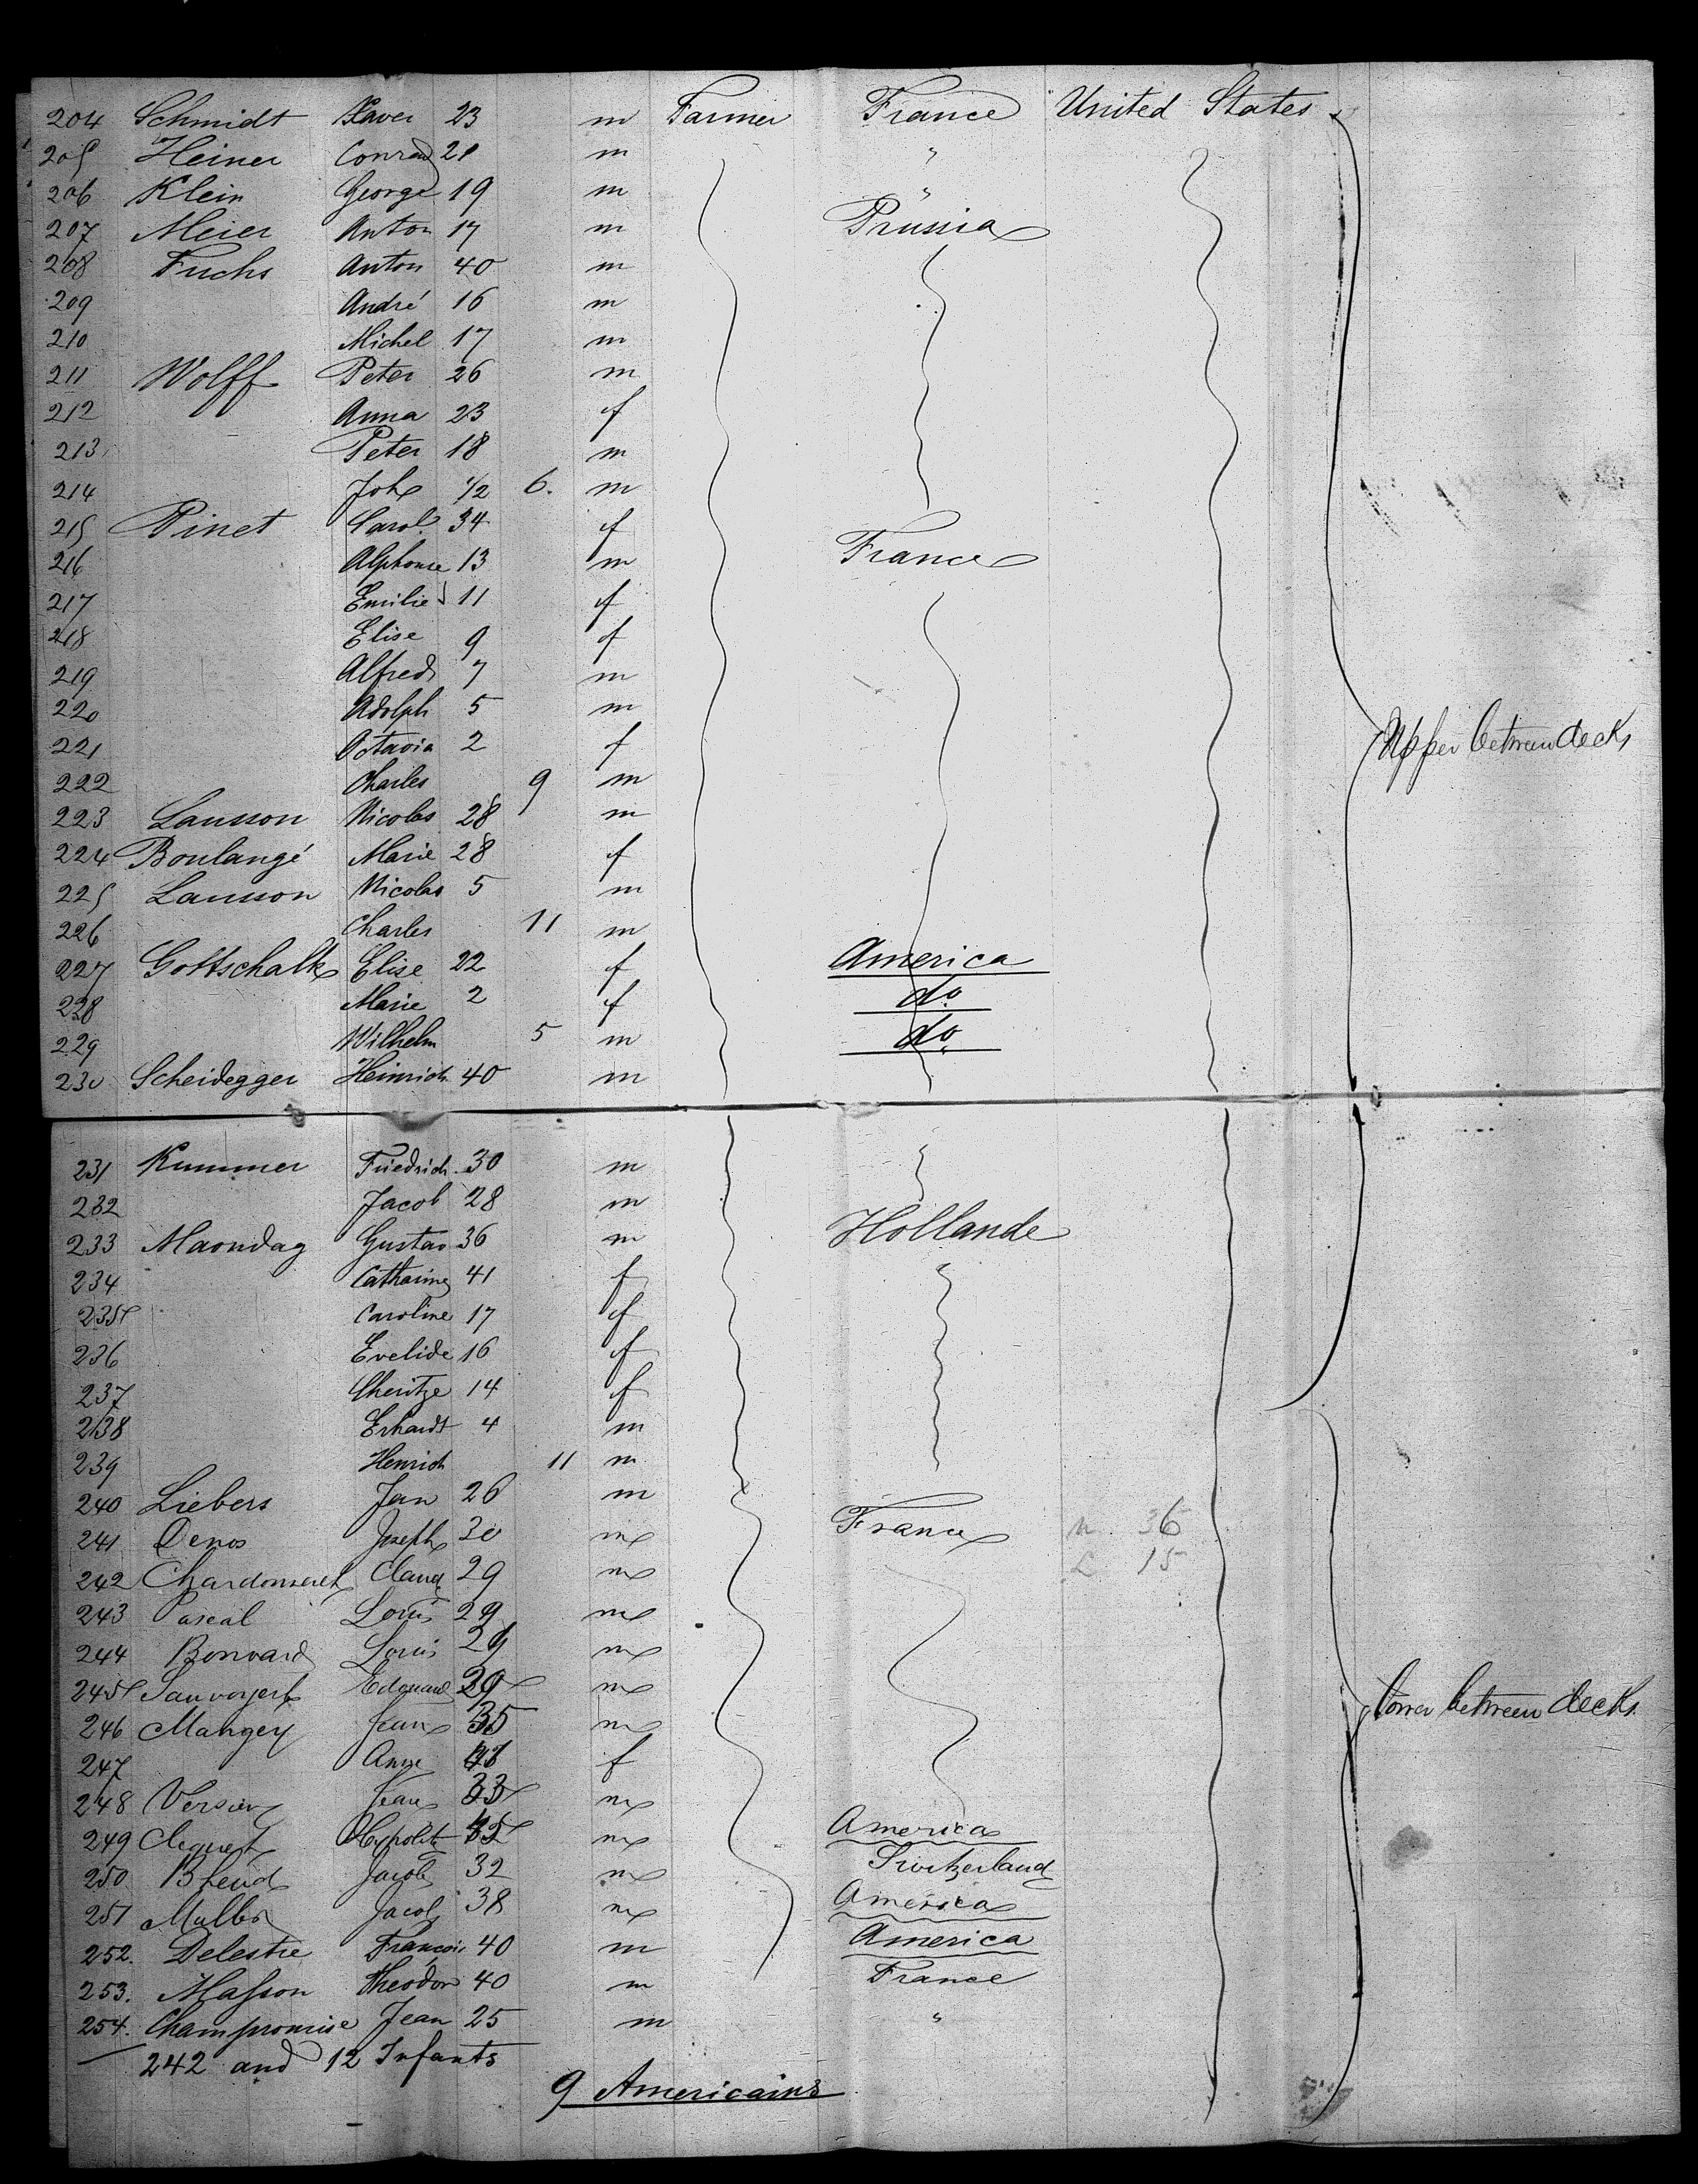 204 Schmidt Xaver 23 m Farmer France United States
205 Heiner Conrad 21 m "
206 Klein George 19 m "
207 Meier Anton 17 m Prussia
208 Fuchs Anton 40 m
209 André 16 m
210 Michel 17 m
211 Wolff Peter 26 m
212 Anna 23 f
213 Peter 18 m
214 Joh 1/2 6. m
215 Pinet Carol. 34 f
216 Alphonse 13 m France
217 Emilie 11 f
218 Elise 9 f
219 Alfred 7 m
220 Adolph 5 m
221 Octavia 2 f Upper between decks
222 Charles 9 m
223 Lausson Nicolas 28 m
224 Boulangé Marie 28 f
225 Lausson Nicolas 5 m
226 Charles 11 m
227 Gottschalk Elise 22 f America
228 Marie 2 f do
229 Wilhelm 5 m do
230 Scheidegger Heinrich 40 m
231 Kummer Friedrich 30 m
232 Jacob 28 m
233 Maondag Gustav 36 m Hollande
234 Catharine 41 f
235 Caroline 17 f
236 Evelide 16 f
237 14 f
238 Erhardt 4 m
239 Henrich 11 m
240 Liebers Jan 26 m
241 Denos Joseph 30 m France 36
242 Chardonneret Claud 29 m 15
243 Pascal Louis 29 m
244 Bonvard Louis 29 m
245 Edouard 29 m Lower between decks
246 Mangey Jean 35 m
247 Anne f
248 Versier Jean 33 m
249 Hypolite m America
250 Jacob 32 m Switzerland
251 Muller Jacob 38 m America
252. Delestre François 40 m America
253. Masson Theodor 40 m France
254. Champromise Jean 25 m "
242 and 12 Infants
9 Americains